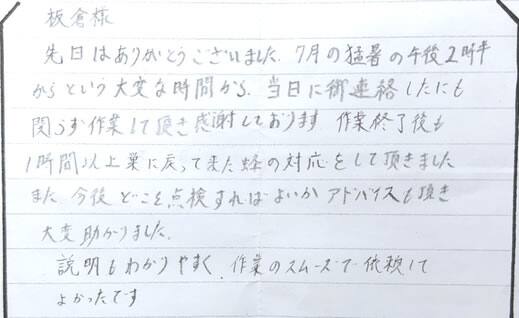 板倉様
先日はありがとうございました。7月の猛暑の午後2時半
からという大変な時間から、当日に御連絡したにも
関らず作業して頂き感謝しております 作業終了後も
1時間以上巣に戻ってきた蜂の対応をして頂きました
また 今後 どこを点検すればよいか アドバイスも頂き
大変助かりました。
説明もわかりやすく、作業のスムーズで依頼して
よかったです